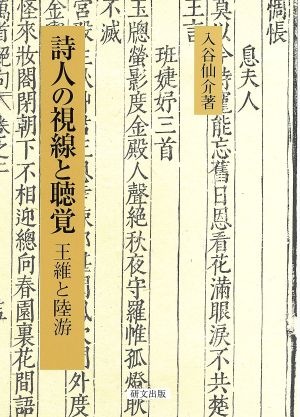 息夫人
莫以今時寵能忘舊日恩看花滿眼淚不共
入谷仙介著
班婕妤三首
玉牕螢影度金殿人聲絕秋夜守羅帷孤燈耿
不滅
詩人の視線と聴覚
王維と陸游
外度
怪來妝閣閉朝下不相迎總向春園裏花間語
研文出版